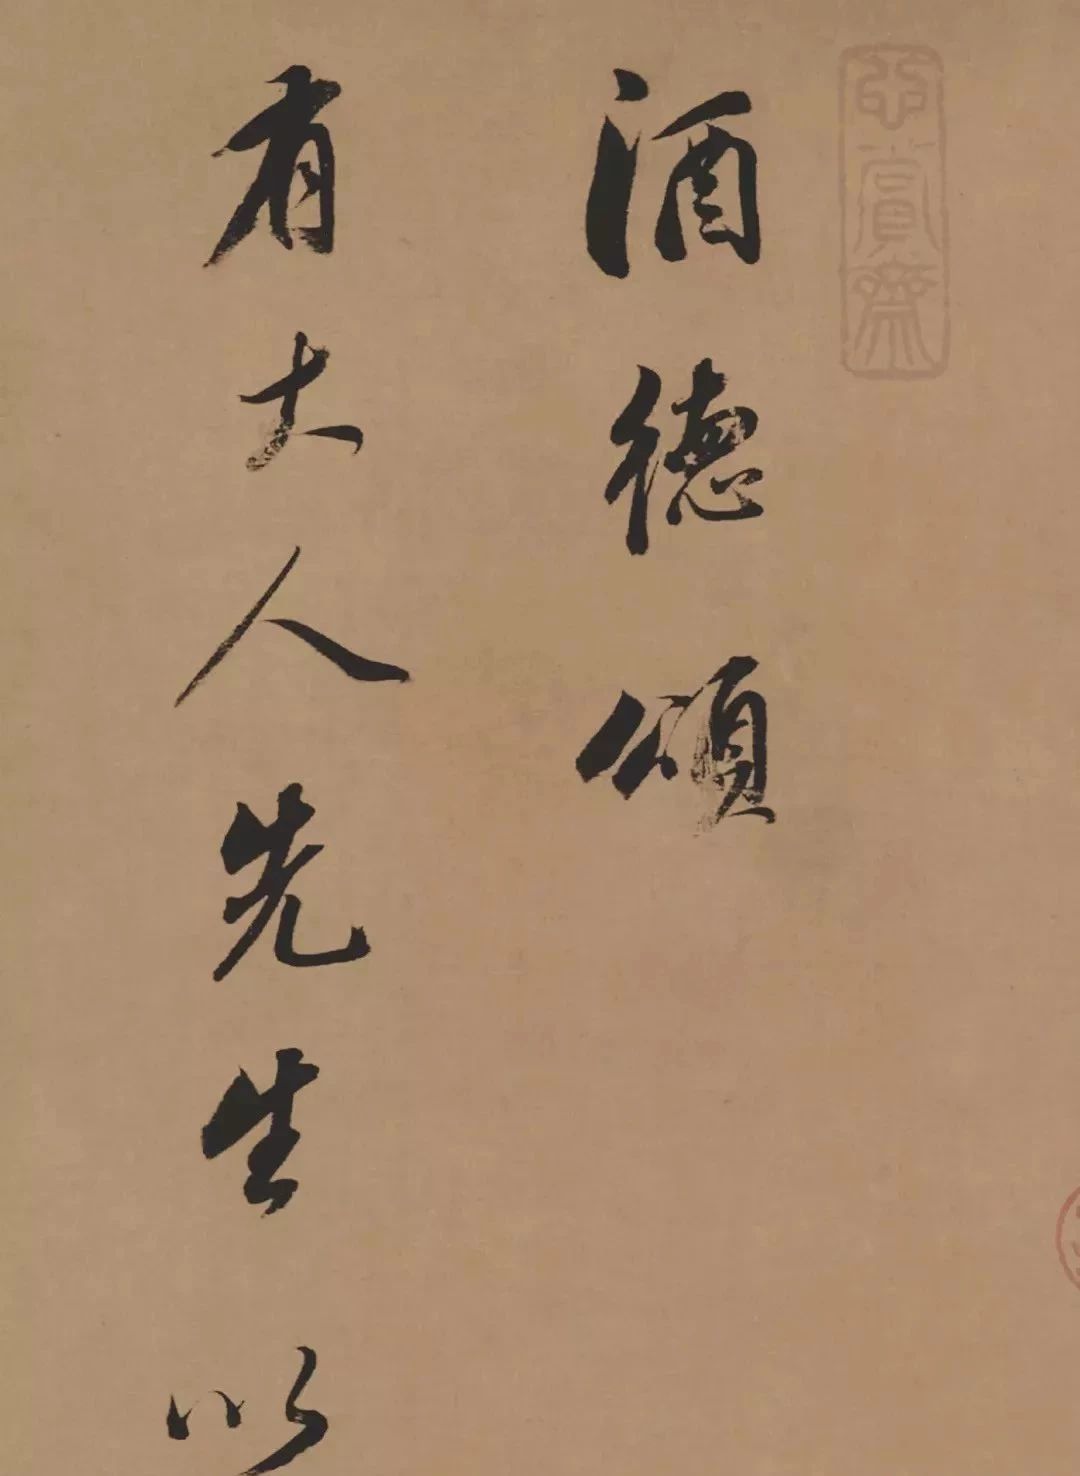 酒德頌
有大人先生以
玄賞齋